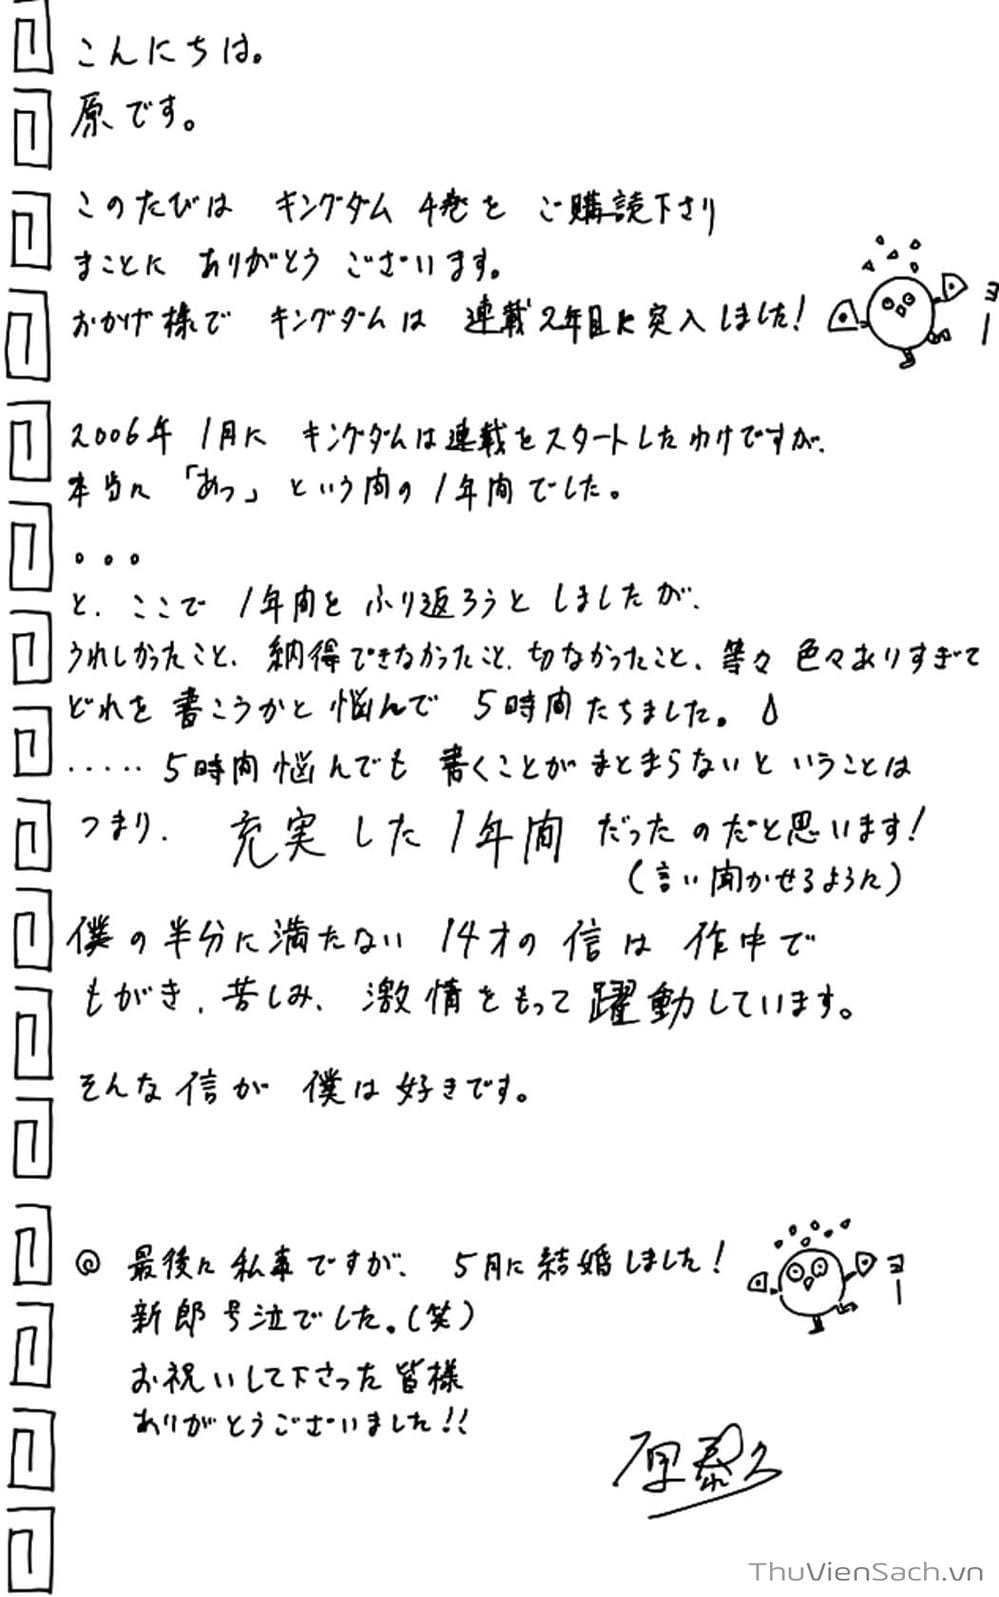 こんにちは。
原です。
このたびは キングダム 4巻を ご購読下さり
まことに ありがとう ございます。
おかげ様で キングダムは 連載2年目に突入しました!
ヨー
2006年 1月に キングダムは連載をスタートしたわけですが、
本当に 「あっ」という間の 1年間でした。
。。。
と、ここで 1年間を ふり返ろうと しましたが、
うれしかったこと、納得できなかったこと、切なかったこと、等々 色々ありすぎて
どれを 書こうかと 悩んで 5時間たちました。
‥‥‥5時間悩んでも 書くことが まとまらないと いうことは
つまり、充実した1年間 だったのだと思います!
(言い聞かせるように)
僕の半分に満たない 14才の 信は 作中で
もがき、苦しみ、激情をもって 躍動しています。
そんな信が 僕は好きです。
◎ 最後に 私事ですが、5月に結婚しました!
ヨー
新郎号泣でした。(笑)
お祝いして下さった 皆様
ありがとうございました!!
原泰久
ThuVienSach.vn